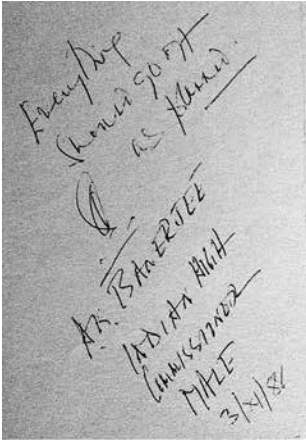 Everything
should go on
as planned.
A.K. BANERJEE
INDIAN HIGH
COMMISSIONER
MALE
3/XI/88